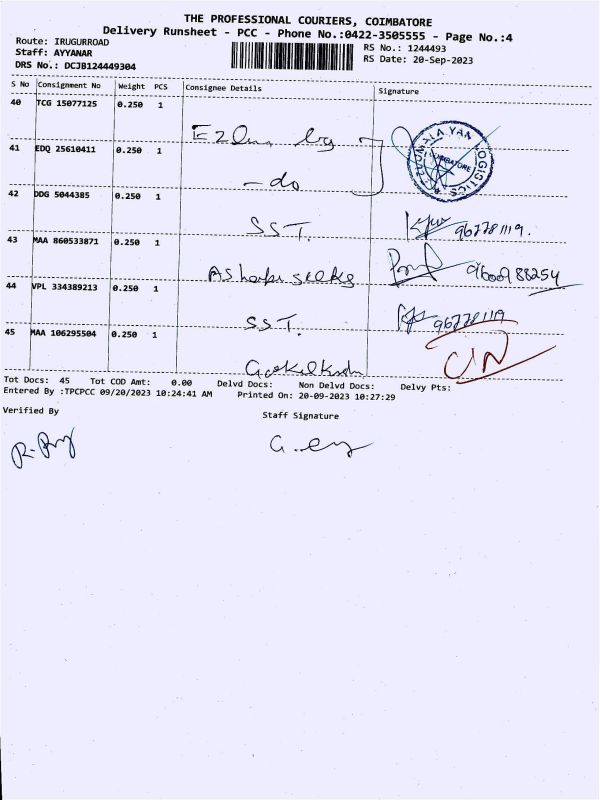 THE PROFESSIONAL COURIERS, COIMBATORE
Delivery Runsheet - PCC - Phone No.:0422-3505555 - Page No.:4
Route: IRUGURROAD
RS No.: 1244493
Staff: AYYANAR
RS Date: 20-Sep-2023
DRS No.: DCJB124449304
S No Consignment No Weight PCS Consignee Details Signature
40 TCG 15077125 0.250 1
41 EDQ 25610411 0.250 1
- do
COIMBATORE
42 DDG 5044385 0.250 1
SST.
43 MAA 860533871 0.250 1
9600988254
44 VPL 334389213 0.250 1
SST.
45 MAA 106295504 0.250 1
Tot Docs: 45 Tot COD Amt: 0.00 Delvd Docs: Non Delvd Docs: Delvy Pts:
Entered By :TPCPCC 09/20/2023 10:24:41 AM Printed On: 20-09-2023 10:27:29
Verified By
Staff Signature